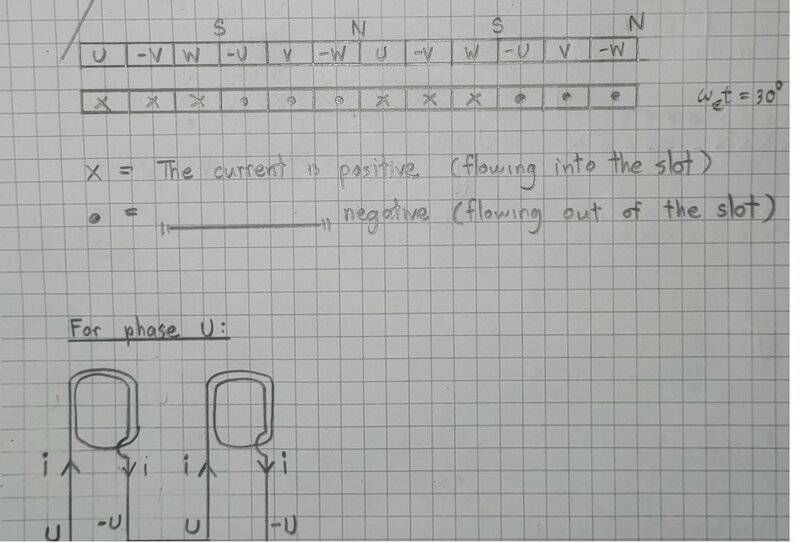 S N S N
U -V W -U V -W U -V W -U V -W
x x x • • • x x x • • • ωet = 30°
x = The current is positive (flowing into the slot)
• = ——— negative (flowing out of the slot)
For phase U:
i i i i
U -U U -U